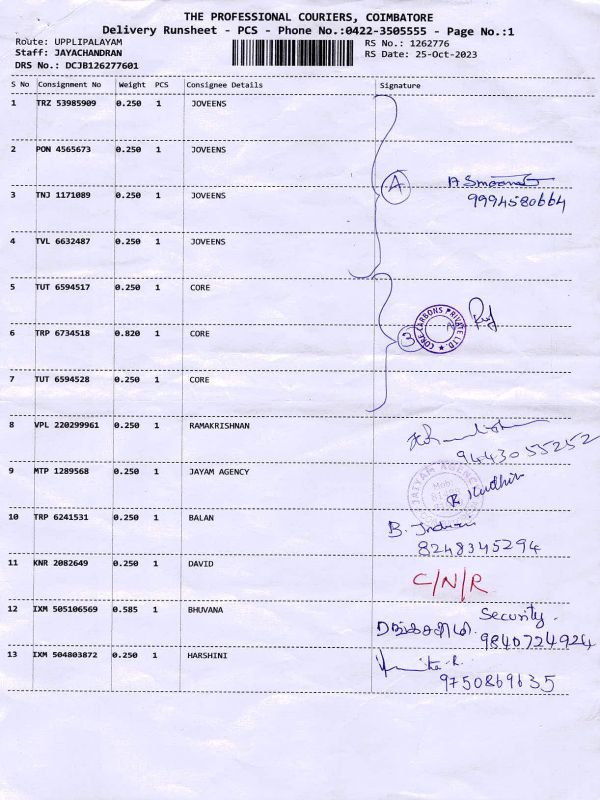 THE PROFESSIONAL COURIERS, COIMBATORE
Delivery Runsheet - PCS - Phone No.:0422-3505555 - Page No.:1
Route: UPPLIPALAYAM
Staff: JAYACHANDRAN
DRS No.: DCJB126277601
RS No.: 1262776
RS Date: 25-Oct-2023
S No Consignment No Weight PCS Consignee Details Signature
1 TRZ 53985909 0.250 1 JOVEENS
2 PON 4565673 0.250 1 JOVEENS
A
9994580664
3 TNJ 1171089 0.250 1 JOVEENS
4 TVL 6632487 0.250 1 JOVEENS
5 TUT 6594517 0.250 1 CORE
CORE CARBONS PRIVATE LTD
6 TRP 6734518 0.820 1 CORE
3
7 TUT 6594528 0.250 1 CORE
8 VPL 220299961 0.250 1 RAMAKRISHNAN
9443055252
9 MTP 1289568 0.250 1 JAYAM AGENCY
JAIYAM AGENC
10 TRP 6241531 0.250 1 BALAN
B.
8248345294
11 KNR 2082649 0.250 1 DAVID C/N/R
12 IXM 505106569 0.585 1 BHUVANA Security.
9840724924
13 IXM 504803872 0.250 1 HARSHINI
9750869635